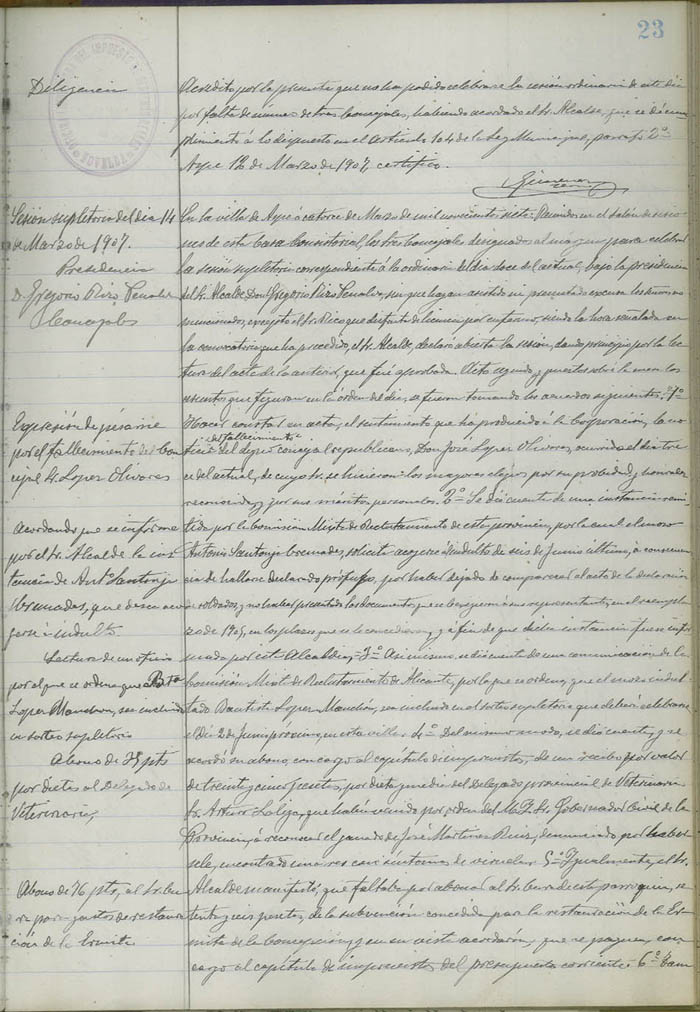 23
Diligencia
Acredito por la presente que no ha podido celebrarse la sesión ordinaria de este día
por falta de número de tres Concejales, habiendo acordado el Sr. Alcalde, que se dé cum-
plimiento á lo dispuesto en el artículo 104 de la ley Municipal, párrafo 2º
Aspe 12 de Marzo de 1907, certifico.
Sesión supletoria del dia 14
de Marzo de 1907.
Presidencia
D. Gregorio Rizo Penalva
Concejales
En la villa de Aspe á catorce de Marzo de mil novecientos siete: Reunidos en el salón de sesio-
nes de esta Casa Consistorial, los tres Concejales designados al margen para celebrar
la sesión supletoria correspondiente á la ordinaria del dia doce del actual, bajo la presidencia
del Sr. Alcalde Don Gregorio Rizo Penalva, sin que hayan asistido ni presentado excusa los Señores no
mencionados, excepto el Sr. Rico que disfruta de licencia por enfermo, siendo la hora señalada en
la convocatoria que ha precedido, el Sr. Alcalde, declaró abierta la sesión, dando principio por la lec-
tura del acta de la anterior, que fué aprobada. Acto seguido, y puestos sobre la mesa los
asuntos que figuran en la órden del día, se fueron tomando los acuerdos siguientes: 1º
Expresión de pésame
por el fallecimiento del Con-
cejal Sr. Lopez Olivares
Hacer constar en acta, el sentimiento que ha producido á la Corporación, la no-
ticia del fallecimiento del Concejal republicano, Don José Lopez Olivares, ocurrido el dia tre-
ce del actual, de cuyo Sr. se hicieron los mayores elogios por su probidad y honradez
reconocida, y por sus méritos personales. 2º Se dió cuenta de una instancia remi-
Acordando que se informe
por el Sr. Alcalde la ins-
tancia de Antº Santonja
Cremades, que desea aco-
gerse á indulto.
tida por la Comisión Mixta de Reclutamiento de esta provincia, por la cual el mozo
Antonio Santonja Cremades, solicita acogerse al indulto de seis de Junio último, á consecuen-
cia de hallarse declarado prófugo, por haber dejado de comparecer al acto de la declaración
de soldados, y no haber presentado los documentos que se le exigieron á su representante, en el reempla-
zo de 1905, en los plazos que se le concedieron, y á fin de que dicha instancia fuese infor-
mada por esta Alcaldia. = 3º Asimismo, se dió cuenta de una comunicación de la
Lectura de un oficio
por el que se ordena que Btª
Lopez Manchon, sea incluido
en sorteo supletorio
Comisión Mixta de Reclutamiento de Alicante, por la que se ordena, que el mozo indul-
tado Bautista Lopez Manchón, sea incluido en el sorteo supletorio que deberá celebrarse
el dia 2 de Junio próximo, en esta villa. 4º Del mismo modo, se dió cuenta, y se
Abono de 35 pts
por dietas al Delegado de
Veterinaria,
acordó su abono, con cargo al capítulo de imprevistos, de un recibo por valor
de treinta y cinco pesetas, por dieta y media del Delegado provincial de Veterinaria
Sr. Arturo, que habia venido por orden del M. I. Sr. Gobernador Civil de la
Provincia, á reconocer el ganado de José Martinez Ruiz, denunciado por haber-
sele encontrado una res con sintomas de viruela. 5º Igualmente, el Sr.
Abono de 76 pts, al Sr. Cu-
ra para gastos de restaura-
ción de la Ermita
Alcalde manifestó, que faltaba por abonar al Sr. Cura de esta parroquia, se-
tenta y seis pesetas, de la subvención concedida para la restauración de la Er-
mita de la Concepción, y en su vista acordaron, que se paguen, con
cargo al capítulo de imprevistos del presupuesto corriente. 6º Tam